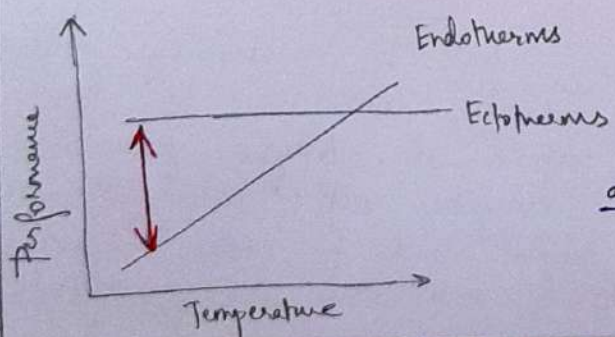 Endotherms
Ectotherms
Performance
Temperature